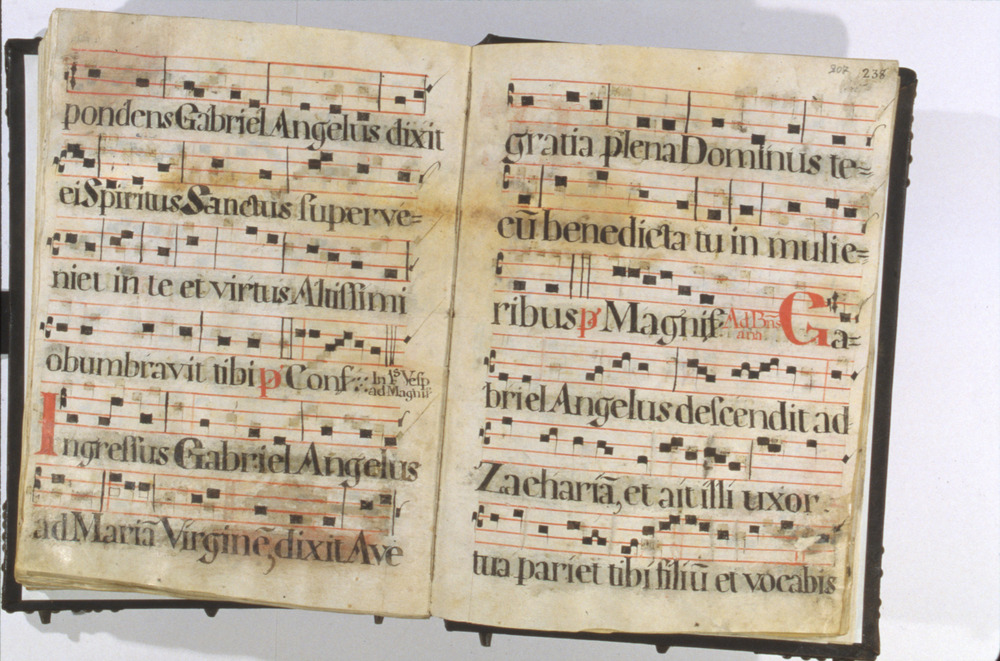 pondens Gabriel Angelus dixit
ei Spiritus Sanctus superve=
niet in te et virtus Altissimi
obumbravit tibi p Conf
In 1s Vesp
ad Magnif
Ingressus Gabriel Angelus
ad Mariā Virginē, dixit Ave
207 238
gratia plena Dominus te=
cū benedicta tu in mulie=
ribus p Magnif Ad Bñs
ana Ga=
briel Angelus descendit ad
Zachariā, et ait illi uxor
tua pariet tibi filiū et vocabis